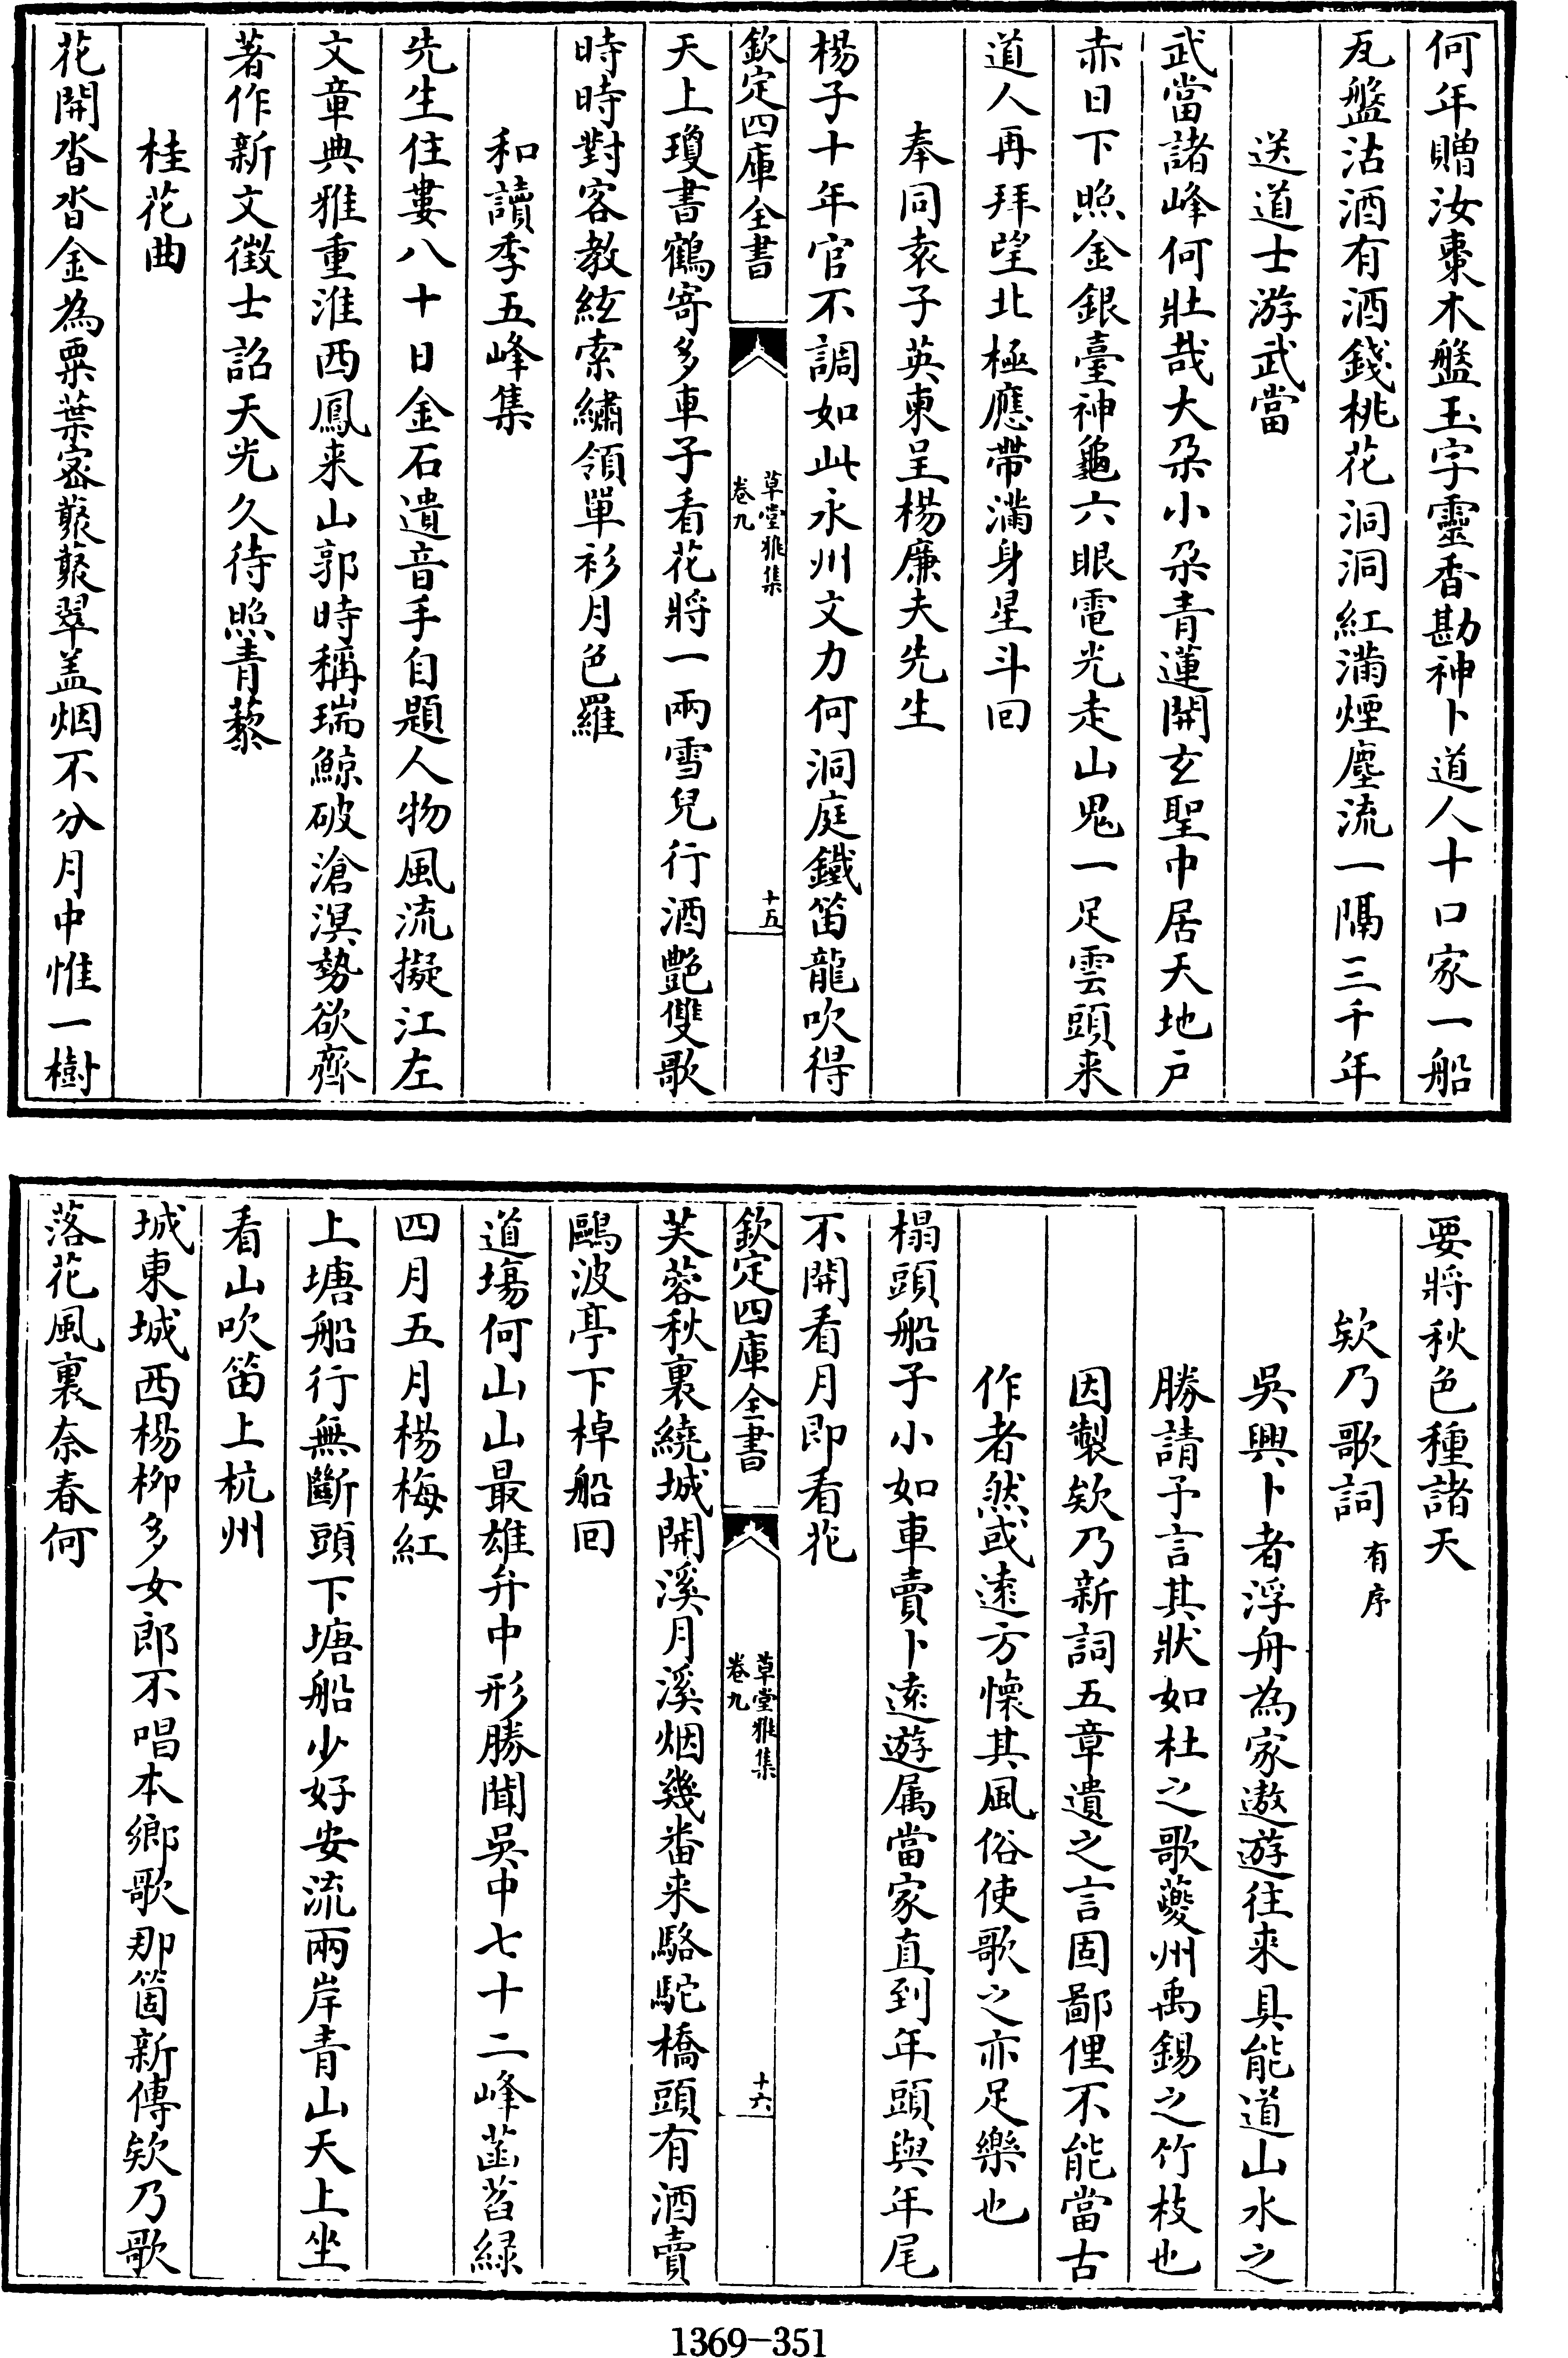 何年贈汝棗木盤玉字靈香勘神卜道人十口家一船
瓦盤沽酒有酒錢桃花洞洞紅滿煙塵流一隔三千年
送道士游武當
武當諸峰何壯哉大朶小朶青蓮開玄聖巾居天地户
赤日下照金銀臺神龜六眼電光走山鬼一足雲頭来
道人再拜望北極應帶滿身星斗回
奉同袁子英東呈楊廉夫先生
楊子十年官不調如此永州文力何洞庭鐵笛龍吹得
欽定四庫全書
草堂雅集
卷九
十五
天上瓊書鶴寄多車子看花將一兩雪兒行酒艷雙歌
時時對客教絃索繡領單衫月色羅
和讀季五峰集
先生住婁八十日金石遺音手自題人物風流擬江左
文章典雅重淮西鳳来山郭時稱瑞鯨破滄溟勢欲齊
著作新文徴士詔天光久待照青藜
桂花曲
花開沓沓金為粟葉密藂藂翠盖烟不分月中惟一樹
要將秋色種諸天
欸乃歌詞有序
吳興卜者浮舟為家遨遊往来具能道山水之
勝請予言其狀如杜之歌夔州禹錫之竹枝也
因製欸乃新詞五章遺之言固鄙俚不能當古
作者然或逺方懐其風俗使歌之亦足樂也
榻頭船子小如車賣卜逺遊属當家直到年頭與年尾
不開看月即看花
欽定四庫全書
草堂雅集
卷九
十六
芙蓉秋裏繞城開溪月溪烟幾畨来駱駝橋頭有酒賣
鷗波亭下棹船回
道場何山山最雄弁中形勝聞吳中七十二峰菡萏緑
四月五月楊梅紅
上塘船行無斷頭下塘船少好安流兩岸青山天上坐
看山吹笛上杭州
城東城西楊柳多女郎不唱本鄉歌那箇新傳欸乃歌
落花風裏奈春何
1369-351